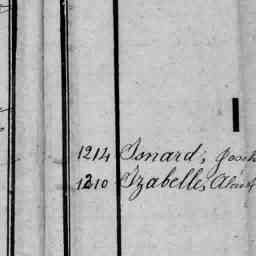 1214 Isnard, Josep
1210 Izabelle, Alex